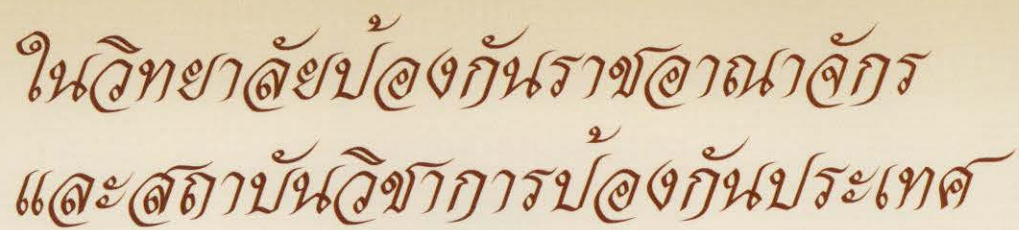 ในวิทยาลัยป้องกันราชอาณาจักร
และสถาบันวิชาการป้องกันประเทศ